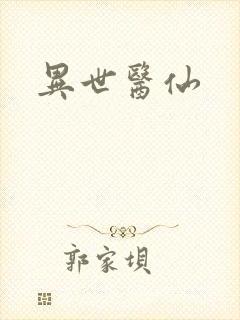 異世醫仙
郭家垻